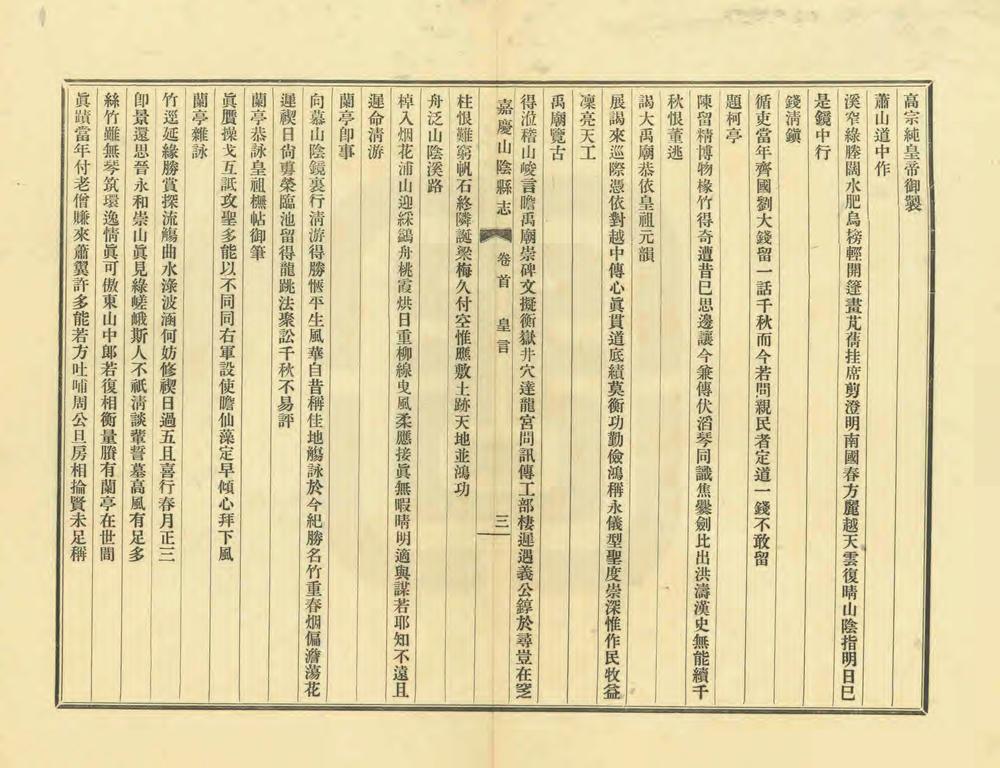 高宗純皇帝御製
蕭山道中作
溪窄綠塍闊水肥烏榜輕開篷畫芃蒨挂席剪澄明南國春方麗越天雲復晴山陰指明日已
是鏡中行
錢清鎮
循吏當年齊國劉大錢留一話千秋而今若問親民者定道一錢不敢留
題柯亭
陳留精博物椽竹得奇遭昔已思邊讓今兼傳伏滔琴同識焦爨劍比出洪濤漢史無能續千
秋恨董逃
謁大禹廟恭依皇祖元韻
展謁來巡際憑依對越中傳心眞貫道底績莫衡功勤儉鴻稱永儀型聖度崇深惟作民牧益
凜亮天工
禹廟覽古
得涖稽山峻言瞻禹廟崇碑文擬衡嶽井穴達龍宮問訊傳工部棲遲遇義公錞於尋豈在窆
嘉慶山陰縣志 卷首 皇言 三
柱恨難窮帆石終隣誕梁梅久付空惟應敷土跡天地並鴻功
舟泛山陰溪路
棹入烟花浦山迎綵鷁舟桃霞烘日重柳線曳風柔應接眞無暇晴明適與謀若耶知不遠且
遲命清游
蘭亭卽事
向慕山陰鏡裏行清游得勝愜平生風華自昔稱佳地觴詠於今紀勝名竹重春烟偏澹蕩花
遲禊日尙㫾榮臨池留得龍跳法聚訟千秋不易評
蘭亭恭詠皇祖橅帖御筆
眞贋操戈互詆攻聖多能以不同同右軍設使瞻仙藻定早傾心拜下風
蘭亭雜詠
竹逕延緣勝賞探流觴曲水漾波涵何妨修禊日過五且喜行春月正三
卽景還思晉永和崇山眞見綠嵯峨斯人不祇淸談輩誓墓高風有足多
絲竹雖無琴筑環逸情眞可傲東山中郞若復相衡量賸有蘭亭在世間
眞蹟當年付老僧賺來蕭翼許多能若方吐哺周公旦房相掄賢未足稱